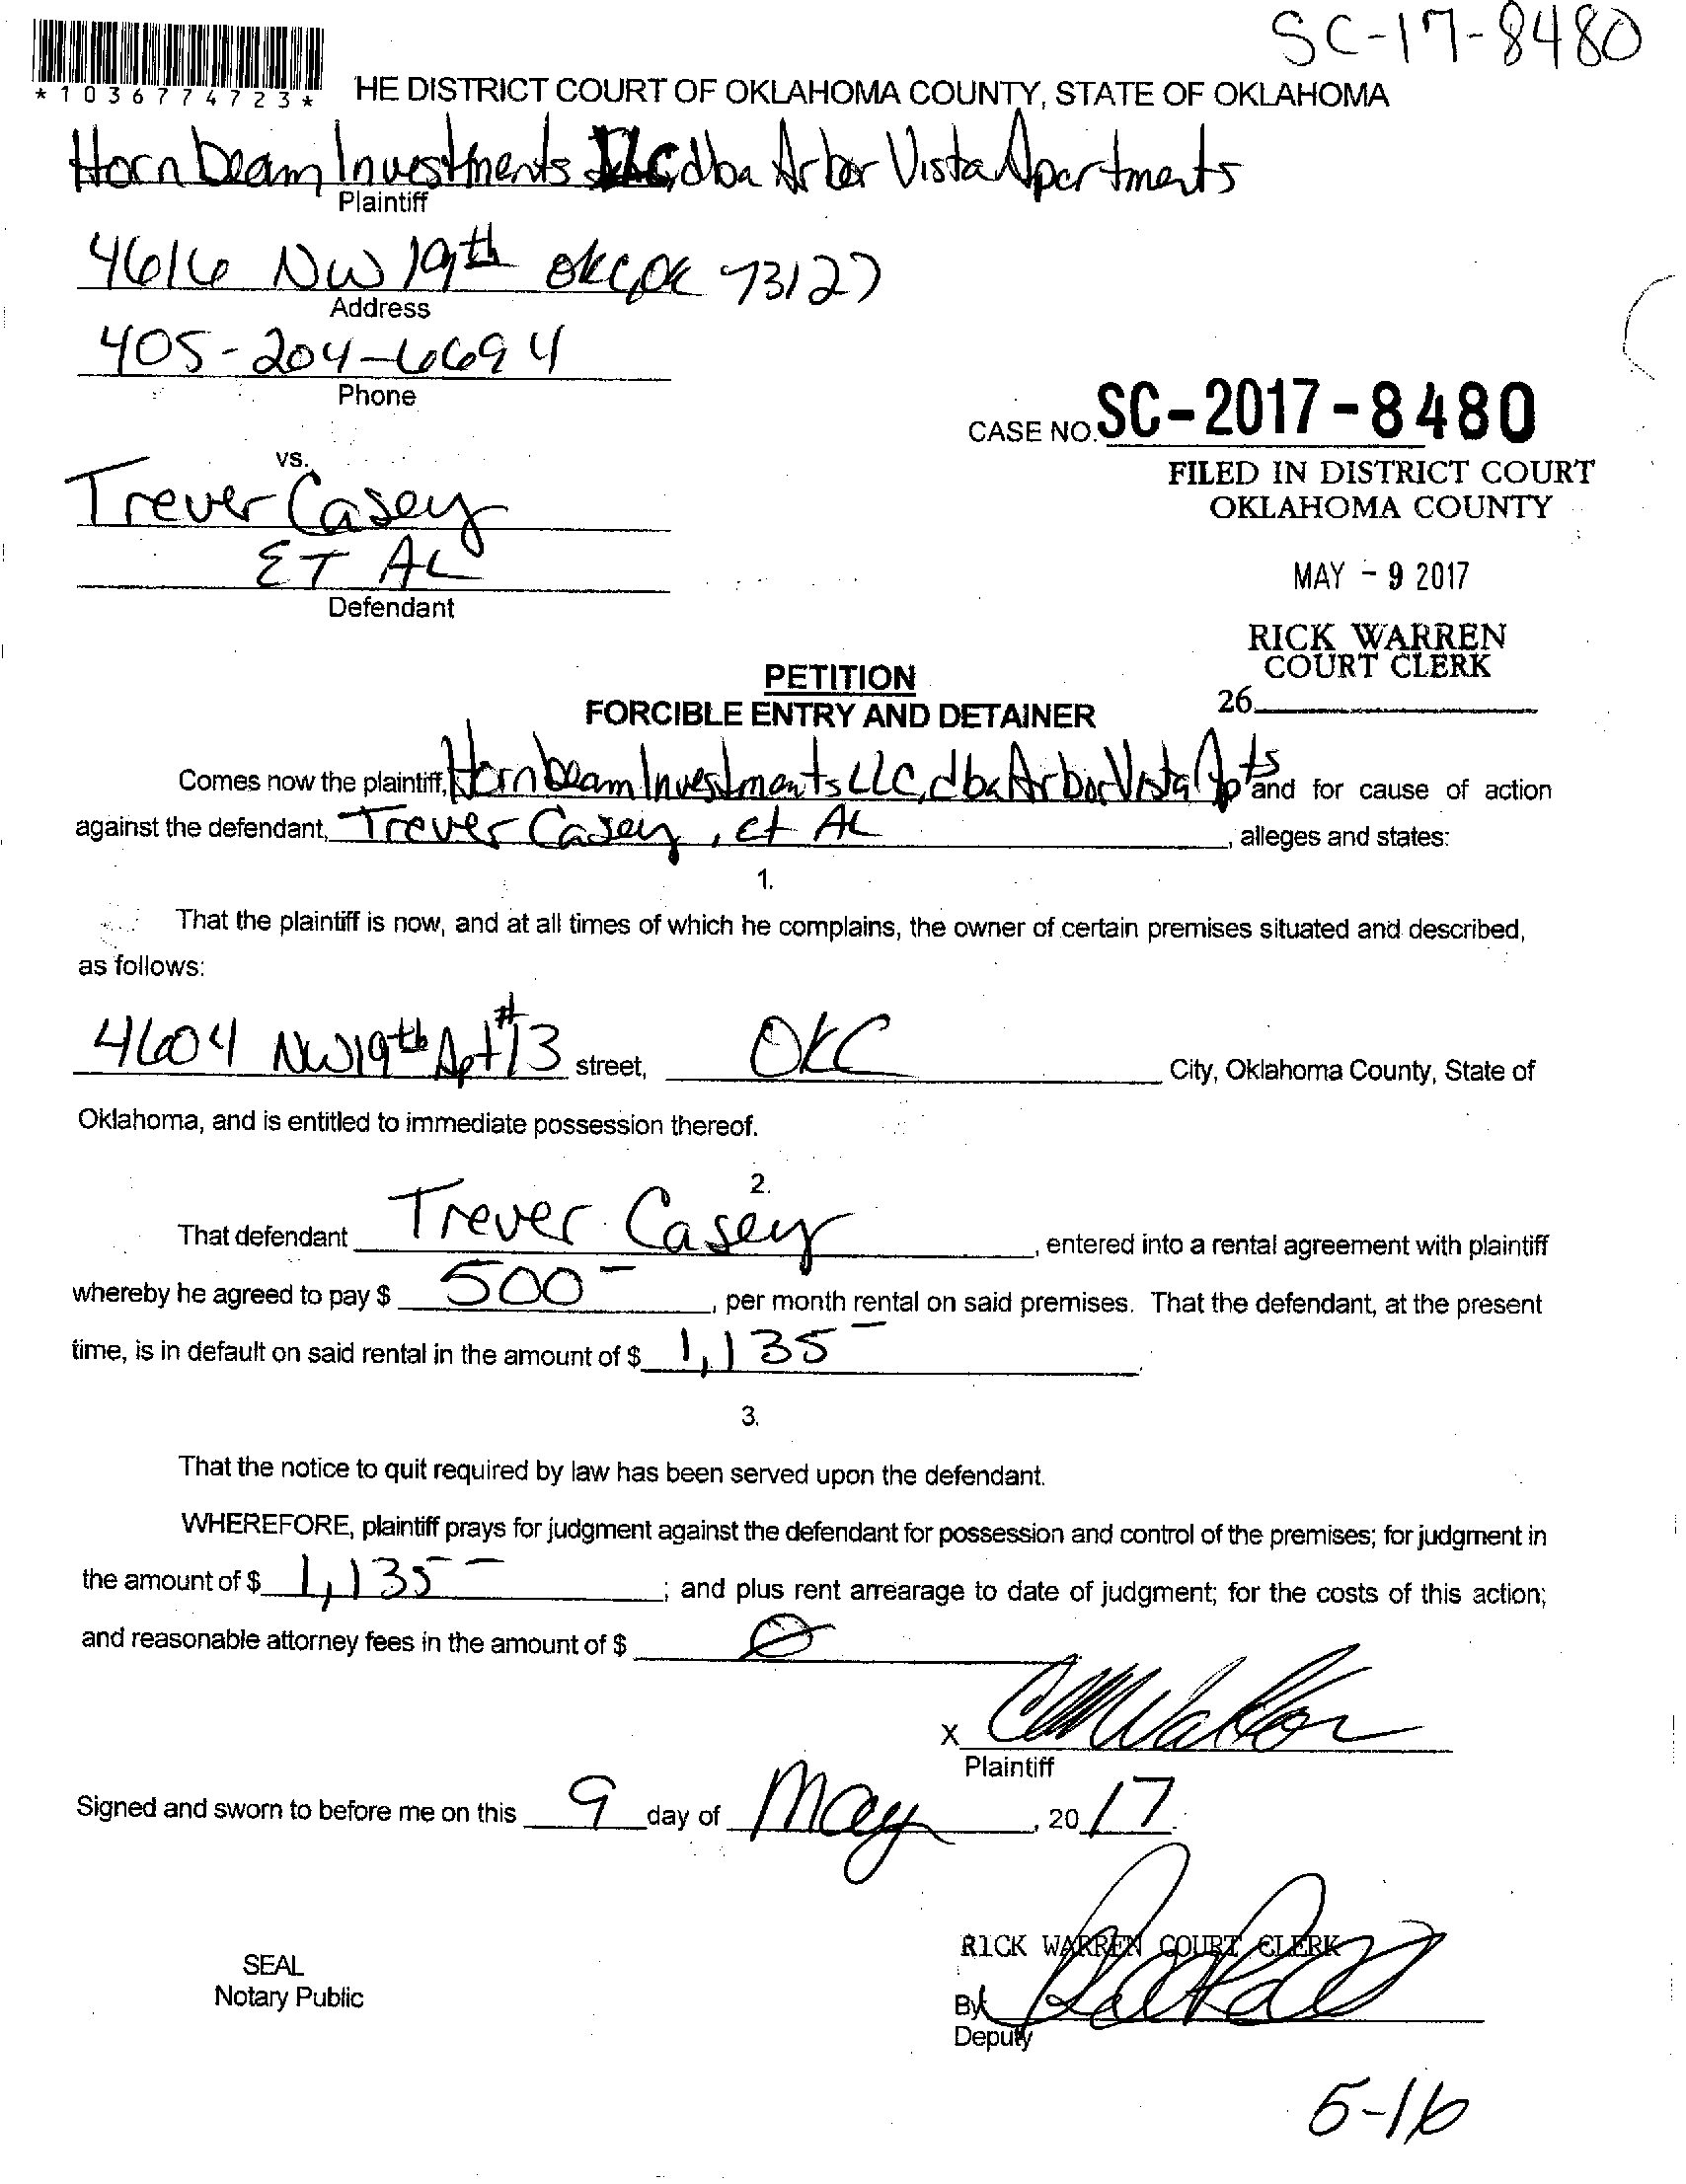 SC-17-8480
*1036774723*
HE DISTRICT COURT OF OKLAHOMA COUNTY, STATE OF OKLAHOMA
Hornbeam Investments LLC, dba Arbor Vista Apartments
Plaintiff
4616 NW 19th OKC, OK 73127
Address
405-204-6694
Phone
CASE NO. SC-2017-8480
FILED IN DISTRICT COURT
OKLAHOMA COUNTY
vs.
Trever Casey
ET AL
Defendant
MAY - 9 2017
RICK WARREN
COURT CLERK
26
PETITION
FORCIBLE ENTRY AND DETAINER
Comes now the plaintiff, Hornbeam Investments LLC, dba Arbor Vista Apts and for cause of action
against the defendant, Trever Casey, et AL, alleges and states:
1.
That the plaintiff is now, and at all times of which he complains, the owner of certain premises situated and described,
as follows:
4604 NW 19th Apt #13 street, OKC City, Oklahoma County, State of
Oklahoma, and is entitled to immediate possession thereof.
2.
That defendant Trever Casey, entered into a rental agreement with plaintiff
whereby he agreed to pay $ 500-, per month rental on said premises. That the defendant, at the present
time, is in default on said rental in the amount of $ 1,135-.
3.
That the notice to quit required by law has been served upon the defendant.
WHEREFORE, plaintiff prays for judgment against the defendant for possession and control of the premises; for judgment in
the amount of $ 1,135-; and plus rent arrearage to date of judgment; for the costs of this action;
and reasonable attorney fees in the amount of $ Ø
X
Plaintiff
Signed and sworn to before me on this 9 day of May, 20 17.
RICK WARREN COURT CLERK
SEAL
Notary Public
By
Deputy
5-16